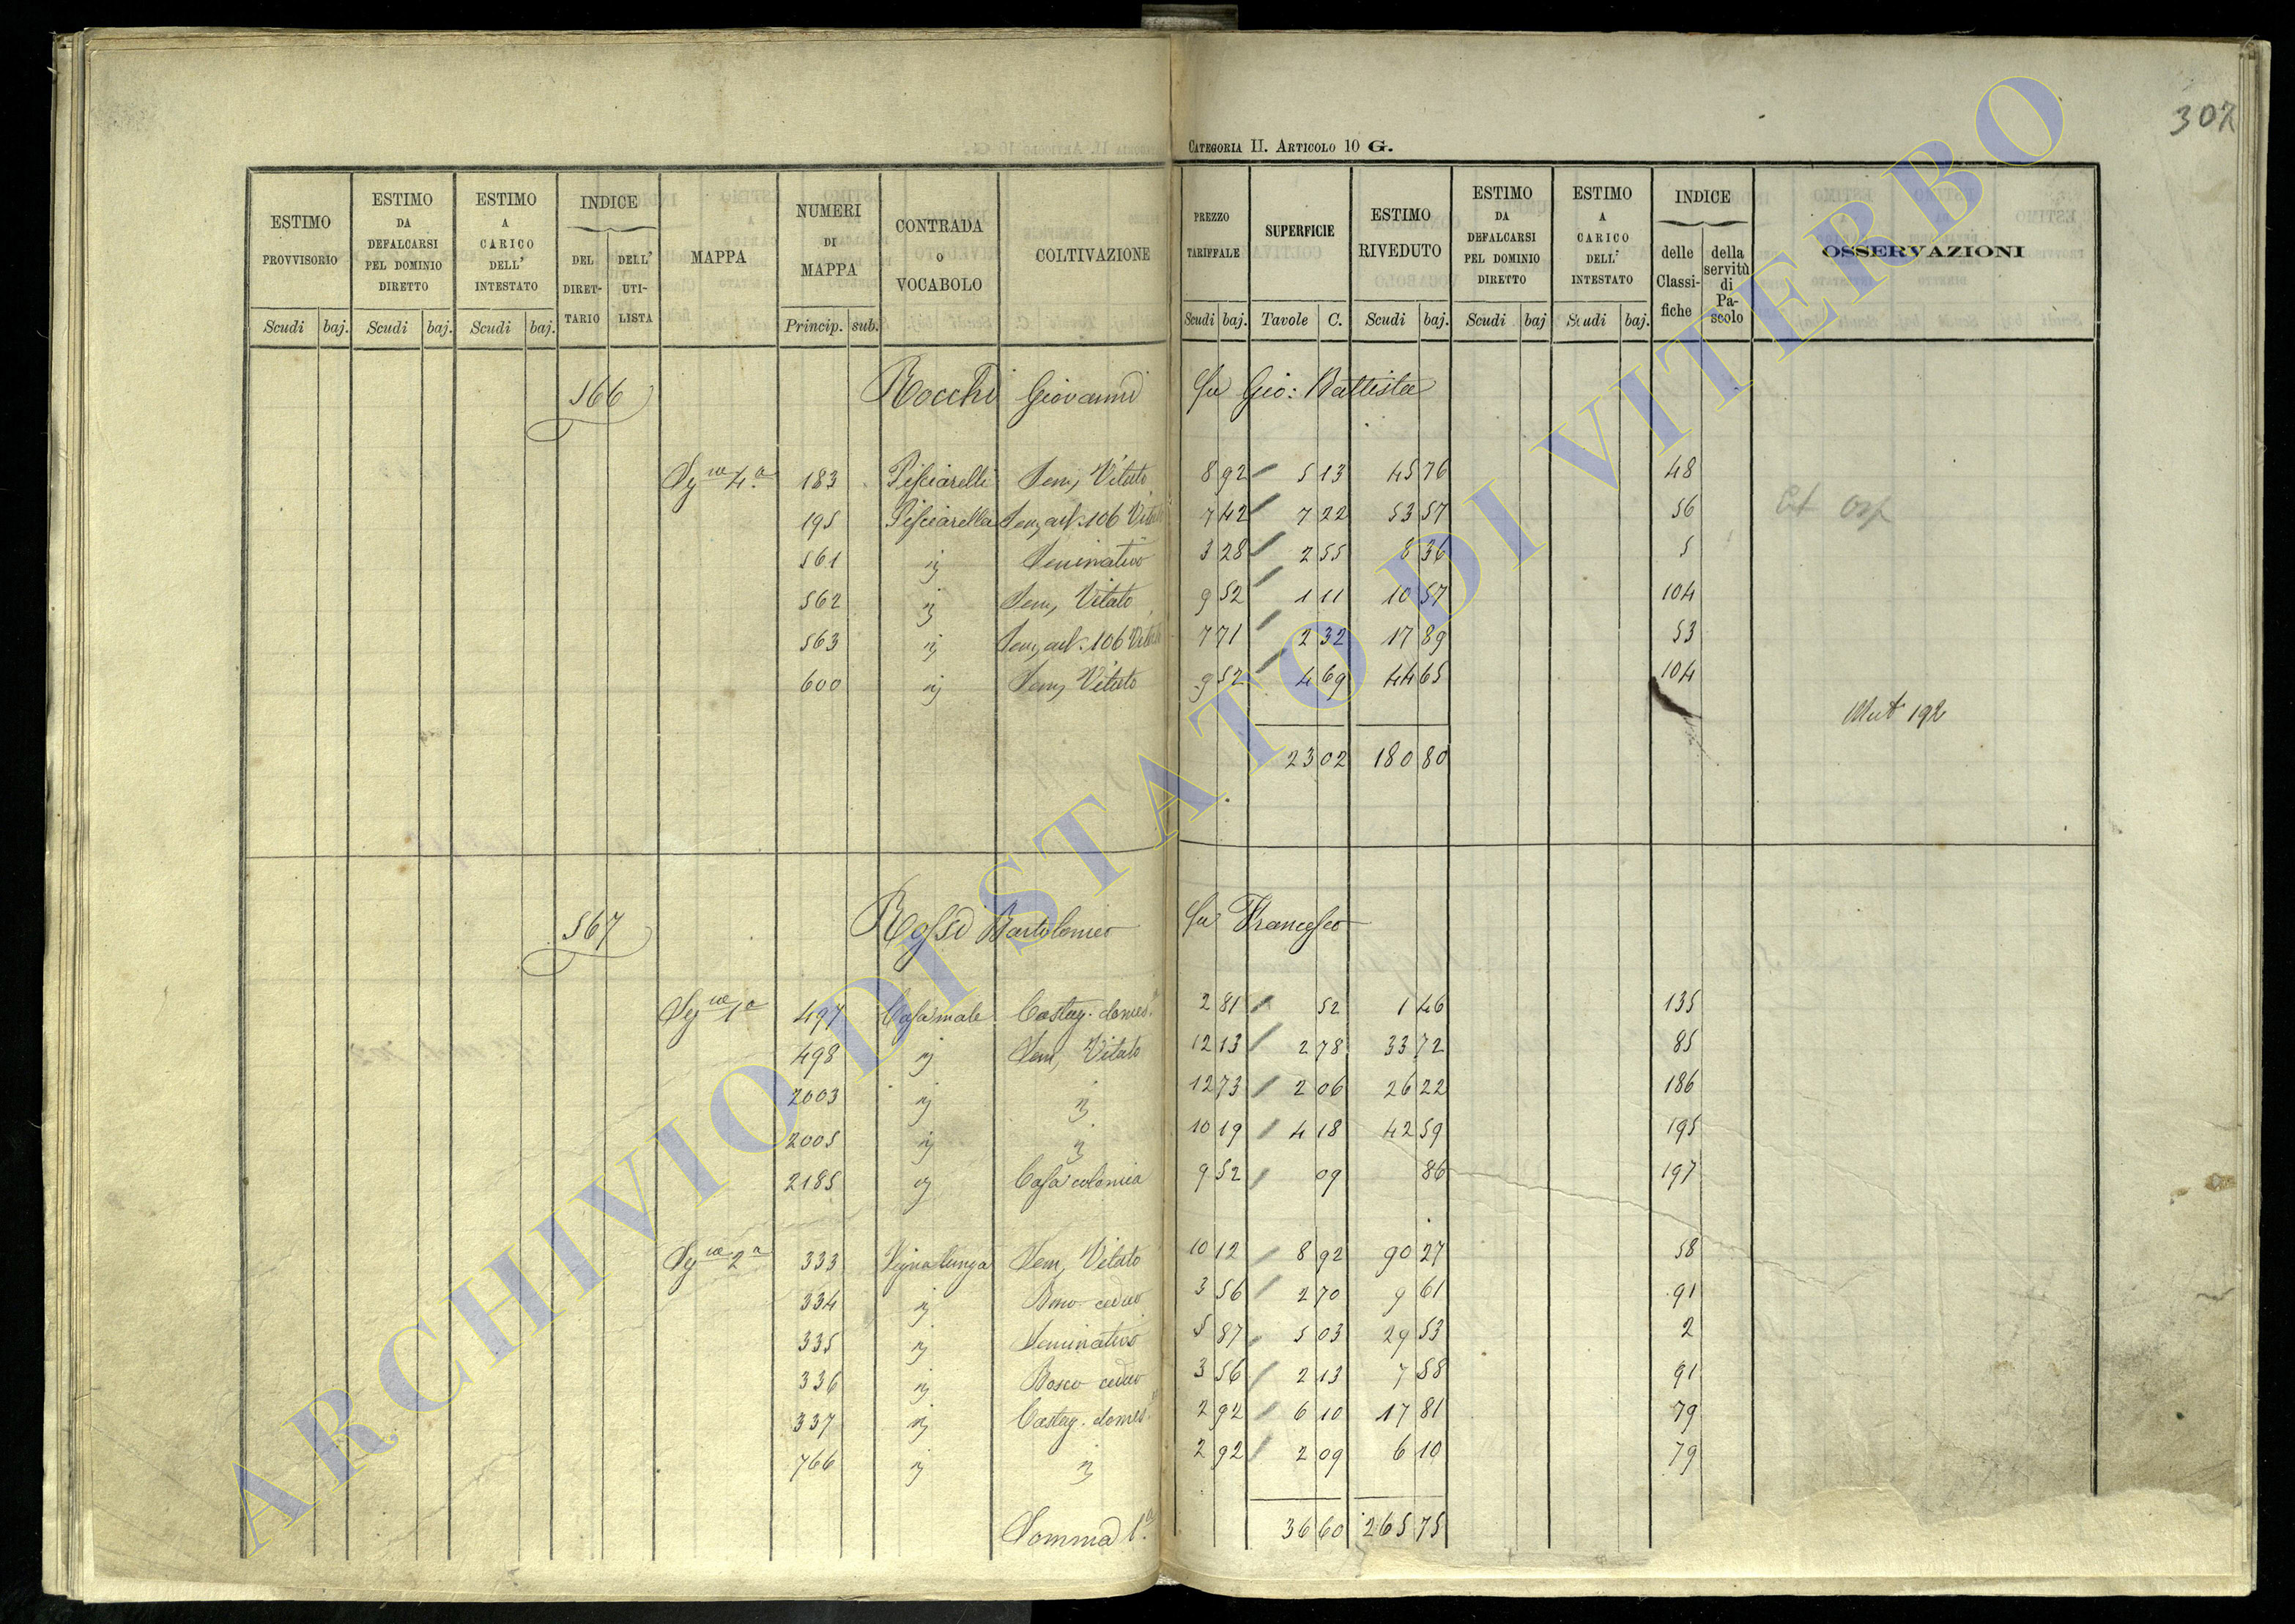 307
CATEGORIA II. ARTICOLO 10 G.
ESTIMO PROVVISORIO | ESTIMO DA DEFALCARSI PEL DOMINIO DIRETTO | ESTIMO A CARICO DELL' INTESTATO | INDICE DEL DIRET-TARIO | DELL' UTI-LISTA | MAPPA | NUMERI DI MAPPA | CONTRADA o VOCABOLO | COLTIVAZIONE | PREZZO TARIFFALE | SUPERFICIE | ESTIMO RIVEDUTO | ESTIMO DA DEFALCARSI PEL DOMINIO DIRETTO | ESTIMO A CARICO DELL' INTESTATO | INDICE delle Classi-fiche | della servitù di Pa-scolo | OSSERVAZIONI
Scudi baj. Scudi baj. Scudi baj. Princip. sub. Scudi baj. Tavole C. Scudi baj. Scudi baj Scudi baj.
566 Rocchi Giovanni fu Gio: Battista
Sez.ne 4.a 183 Pisciarelli Sem, Vitato 8 92 5 13 45 76 48
195 Pisciarella Sem, art. 106 Vitato 7 42 7 22 53 57 56
561 ij Seminativo 3 28 2 55 8 36 5
562 ij Sem, Vitato 9 52 1 11 10 57 104
563 ij Sem, art. 106 Vitato 7 71 2 32 17 89 53
600 ij Sem, Vitato 9 52 4 69 44 65 104
Mut 192
23 02 180 80
567 Rossi Bartolomeo fu Francesco
Sez.ne 1.a 497 Casamale Castag. domes. 2 81 52 1 46 135
498 ij Sem, Vitato 12 13 2 78 33 72 85
2003 ij ij 12 73 2 06 26 22 186
2005 ij ij 10 19 4 18 42 59 195
2185 ij Casa colonica 9 52 09 86 197
Sez.ne 2.a 333 Vignalunga Sem, Vitato 10 12 8 92 90 27 58
334 ij Bosco ceduo 3 56 2 70 9 61 91
335 ij Seminativo 5 87 5 03 29 53 2
336 ij Bosco ceduo 3 56 2 13 7 58 91
337 ij Castag. domes. 2 92 6 10 17 81 79
766 ij ij 2 92 2 09 6 10 79
Somma 1.a 36 60 265 75
ARCHIVIO DI STATO DI VITERBO